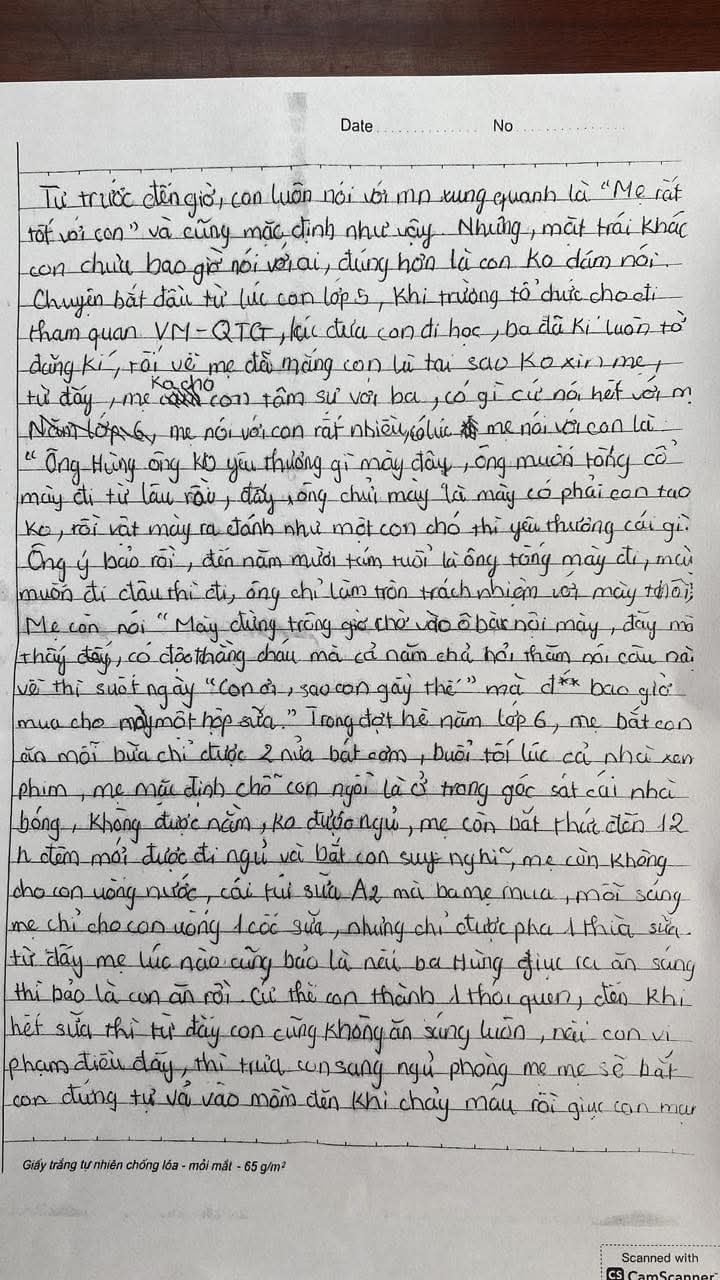 Date No
Từ trước đến giờ, con luôn nói với mn xung quanh là "Mẹ rất
tốt với con" và cũng mặc định như vậy. Nhưng, mặt trái khác
con chưa bao giờ nói với ai, đúng hơn là con ko dám nói.
Chuyện bắt đầu từ lúc con lớp 5, khi trường tổ chức cho đi
tham quan VM-QTG, lúc đưa con đi học, ba đã kí luôn tờ
đăng kí, rồi về mẹ đã mắng con là tại sao ko xin mẹ,
từ đấy, mẹ ko cho con tâm sự với ba, có gì cứ nói hết với m
Năm lớp 6, mẹ nói với con rất nhiều, có lúc mẹ nói với con là:
"Ông Hùng ông ko yêu thương gì mày đâu, ông muốn tống cổ
mày đi từ lâu rồi, đấy, ông chửi mày là mày có phải con tao
ko, rồi vật mày ra đánh như một con chó thì yêu thương cái gì?
Ông ý bảo rồi, đến năm mười tám tuổi là ông tống mày đi, mày
muốn đi đâu thì đi, ông chỉ làm tròn trách nhiệm với mày thôi".
Mẹ còn nói "Mày đừng trông giờ chờ vào ô bà nội mày, đấy mà
thấy đấy, có độc thằng cháu mà cả năm chả hỏi thăm nói câu nà
về thì suốt ngày "Con ơi, sao con gầy thế" mà đ** bao giờ
mua cho mày một hộp sữa." Trong đợt hè năm lớp 6, mẹ bắt con
ăn mỗi bữa chỉ được 2 nửa bát cơm, buổi tối lúc cả nhà xem
phim, mẹ mặc định chỗ con ngồi là ở trong góc sát cái nhà
bóng, không được nằm, ko được ngủ, mẹ còn bắt thức đến 12
h đêm mới được đi ngủ và bắt con suy nghĩ, mẹ còn không
cho con uống nước, cái túi sữa A2 mà ba mẹ mua, mỗi sáng
mẹ chỉ cho con uống 1 cốc sữa, nhưng chỉ được pha 1 thìa sữa.
từ đấy mẹ lúc nào cũng bảo là nếu ba Hùng giục ra ăn sáng
thì bảo là con ăn rồi. Cứ thế con thành 1 thói quen, đến khi
hết sữa thì từ đấy con cũng không ăn sáng luôn, nếu con vi
phạm điều đấy, thì trưa con sang ngủ phòng mẹ mẹ sẽ bắt
con đứng tự vả vào mồm đến khi chảy máu rồi giục con mau
Giấy trắng tự nhiên chống lóa - mỏi mắt - 65 g/m²
Scanned with
CS CamScanner